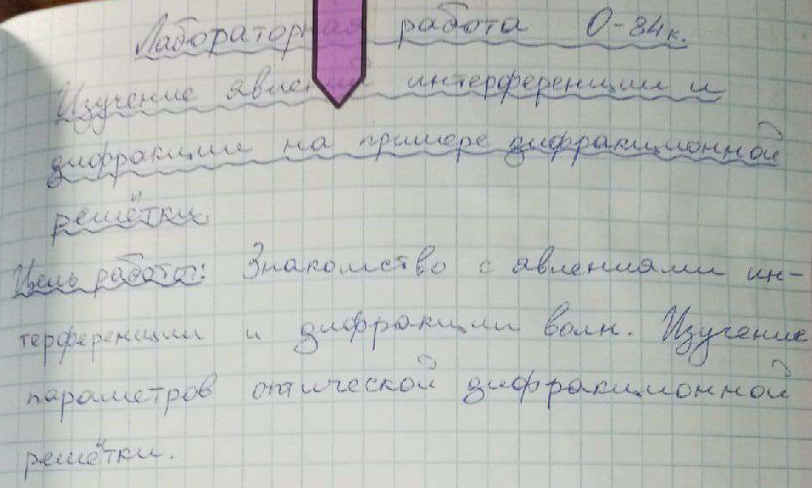 Лабораторная работа О-84к.
Изучение явлений интерференции и
дифракции на примере дифракционной
решётки.
Цель работы: Знакомство с явлениями ин-
терференции и дифракции волн. Изучение
параметров оптической дифракционной
решётки.